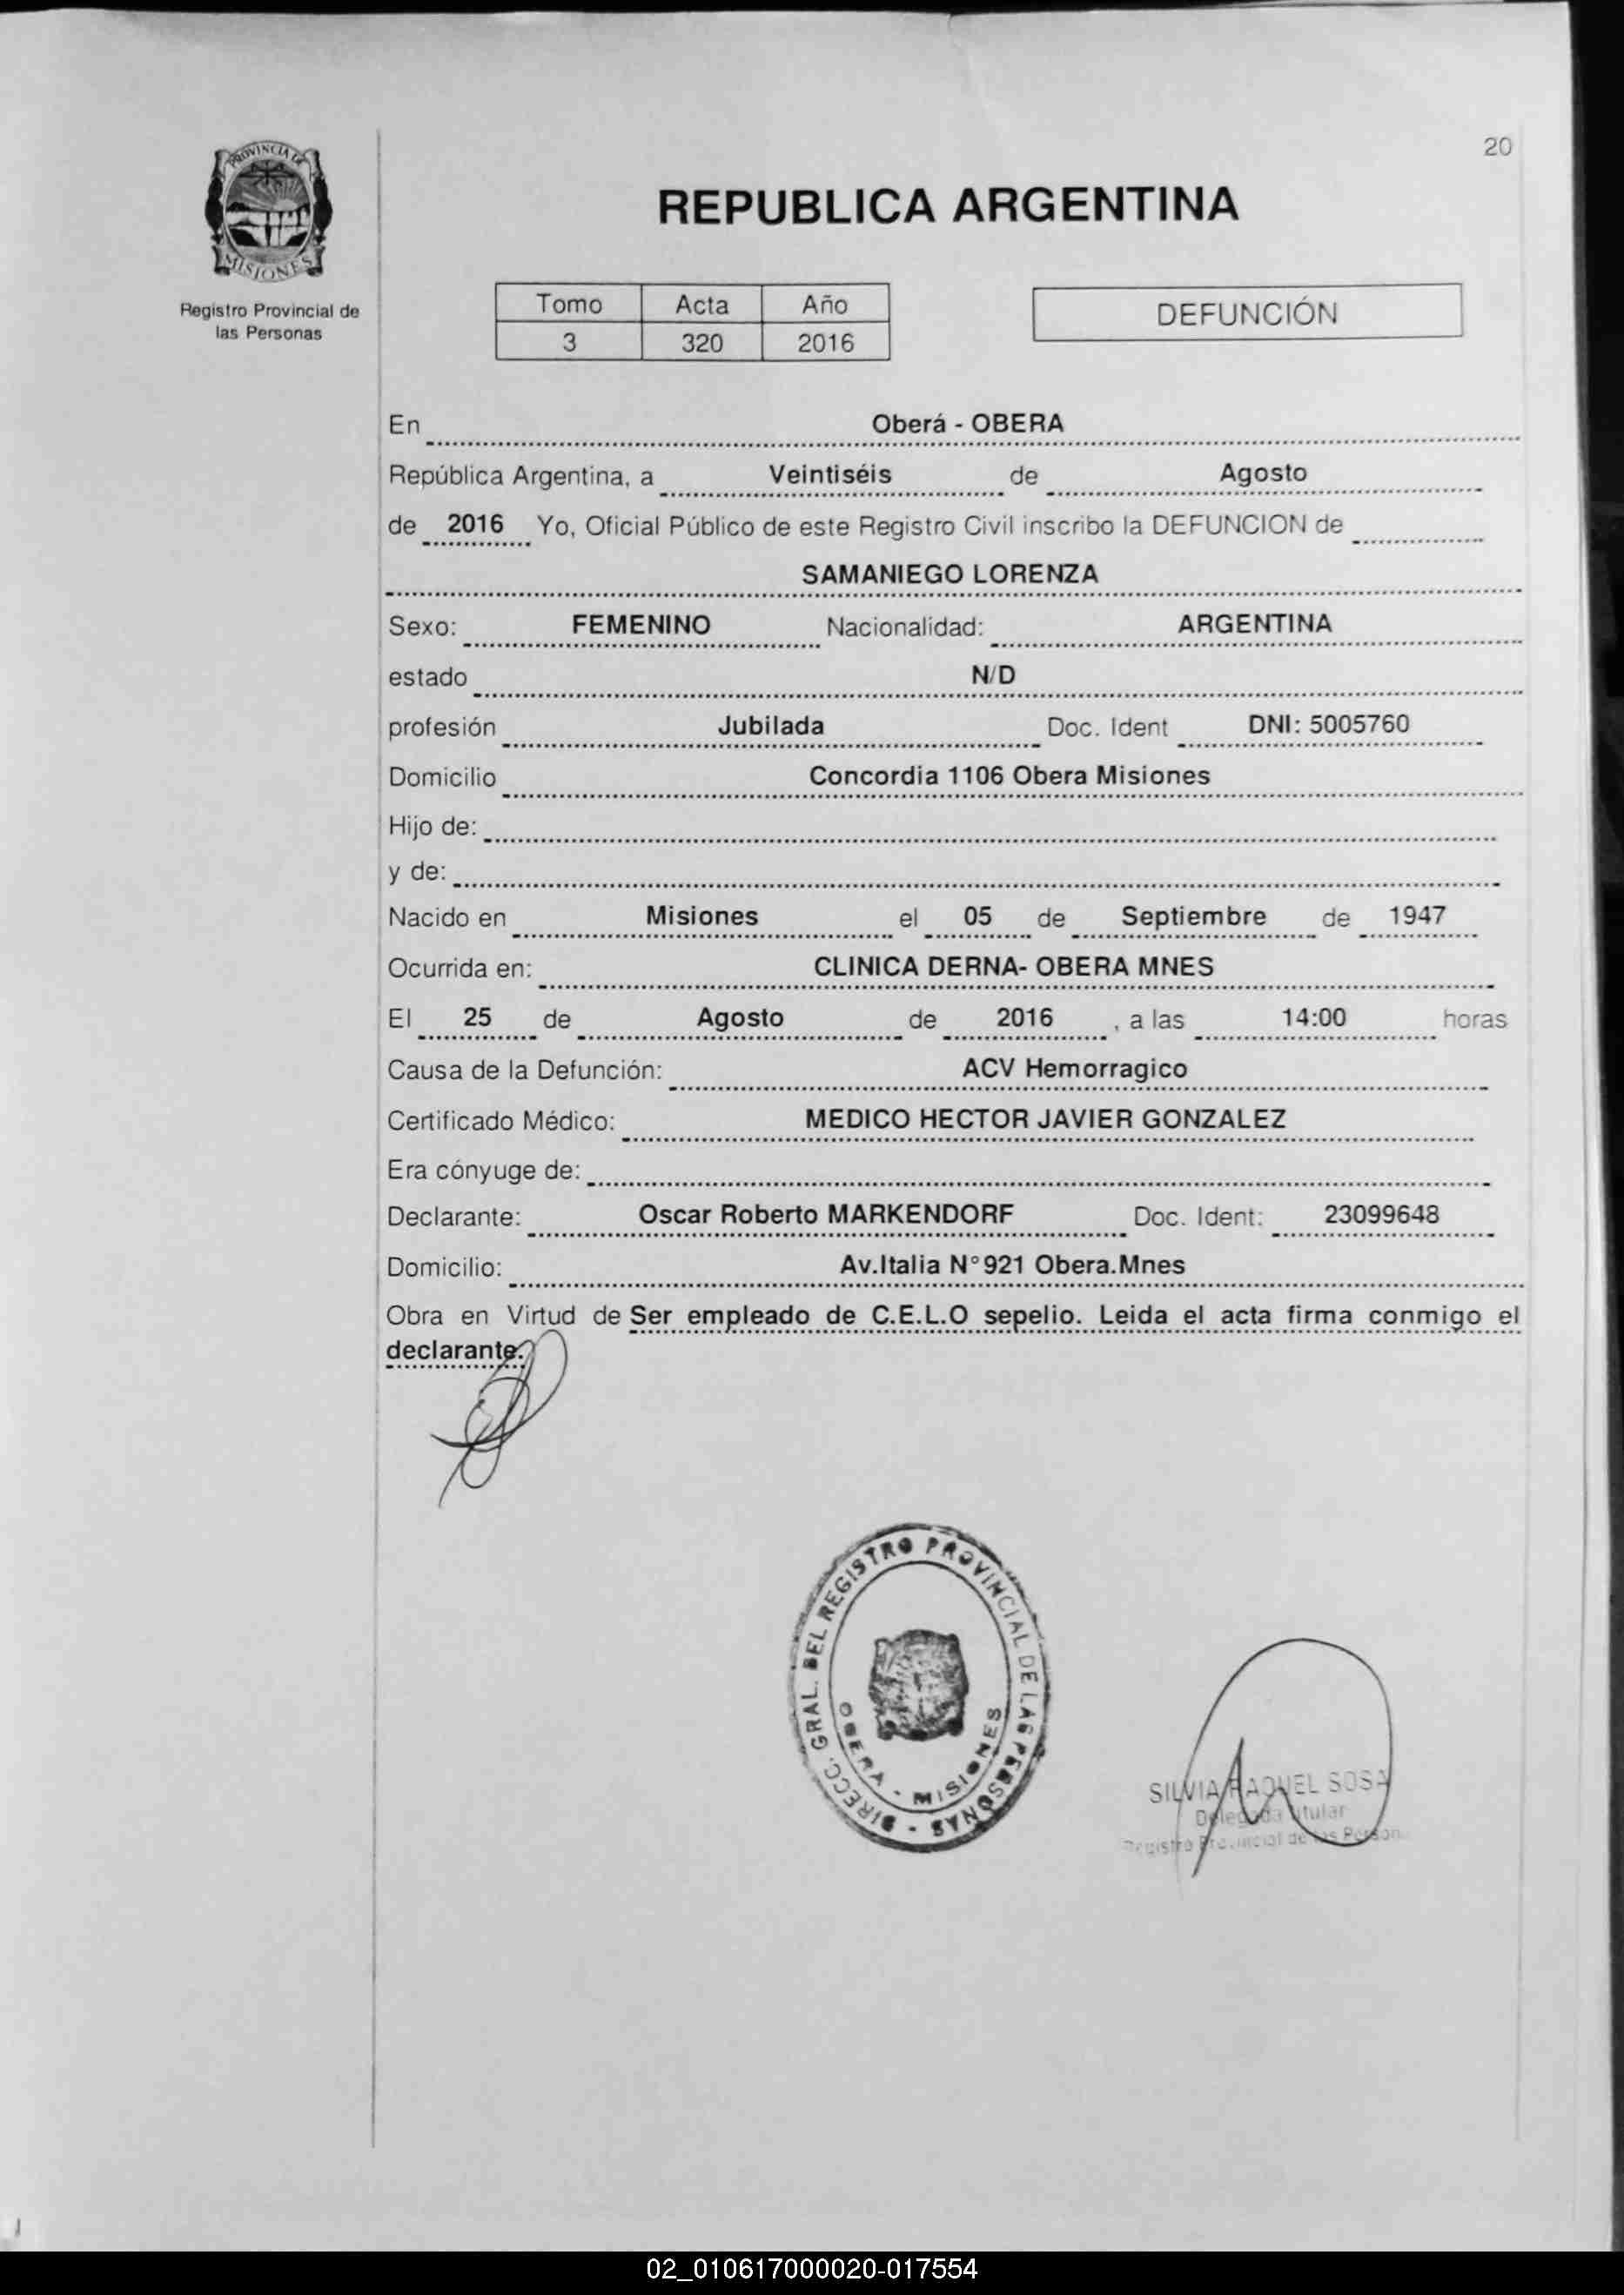 20
PROVINCIA DE
MISIONES
Registro Provincial de
las Personas
REPUBLICA ARGENTINA
Tomo Acta Año
3 320 2016
DEFUNCIÓN
En Oberá - OBERA
República Argentina, a Veintiséis de Agosto
de 2016 Yo, Oficial Público de este Registro Civil inscribo la DEFUNCION de
SAMANIEGO LORENZA
Sexo: FEMENINO Nacionalidad: ARGENTINA
estado N/D
profesión Jubilada Doc. Ident DNI: 5005760
Domicilio Concordia 1106 Obera Misiones
Hijo de:
y de:
Nacido en Misiones el 05 de Septiembre de 1947
Ocurrida en: CLINICA DERNA- OBERA MNES
El 25 de Agosto de 2016 , a las 14:00 horas
Causa de la Defunción: ACV Hemorragico
Certificado Médico: MEDICO HECTOR JAVIER GONZALEZ
Era cónyuge de:
Declarante: Oscar Roberto MARKENDORF Doc. Ident: 23099648
Domicilio: Av.Italia N°921 Obera.Mnes
Obra en Virtud de Ser empleado de C.E.L.O sepelio. Leida el acta firma conmigo el
declarante.
DIRECC. GRAL. DEL REGISTRO PROVINCIAL DE LAS PERSONAS -
OBERA - MISIONES
SILVIA RAQUEL SOSA
Delegada Titular
Registro Provincial de las Person
02_010617000020-017554